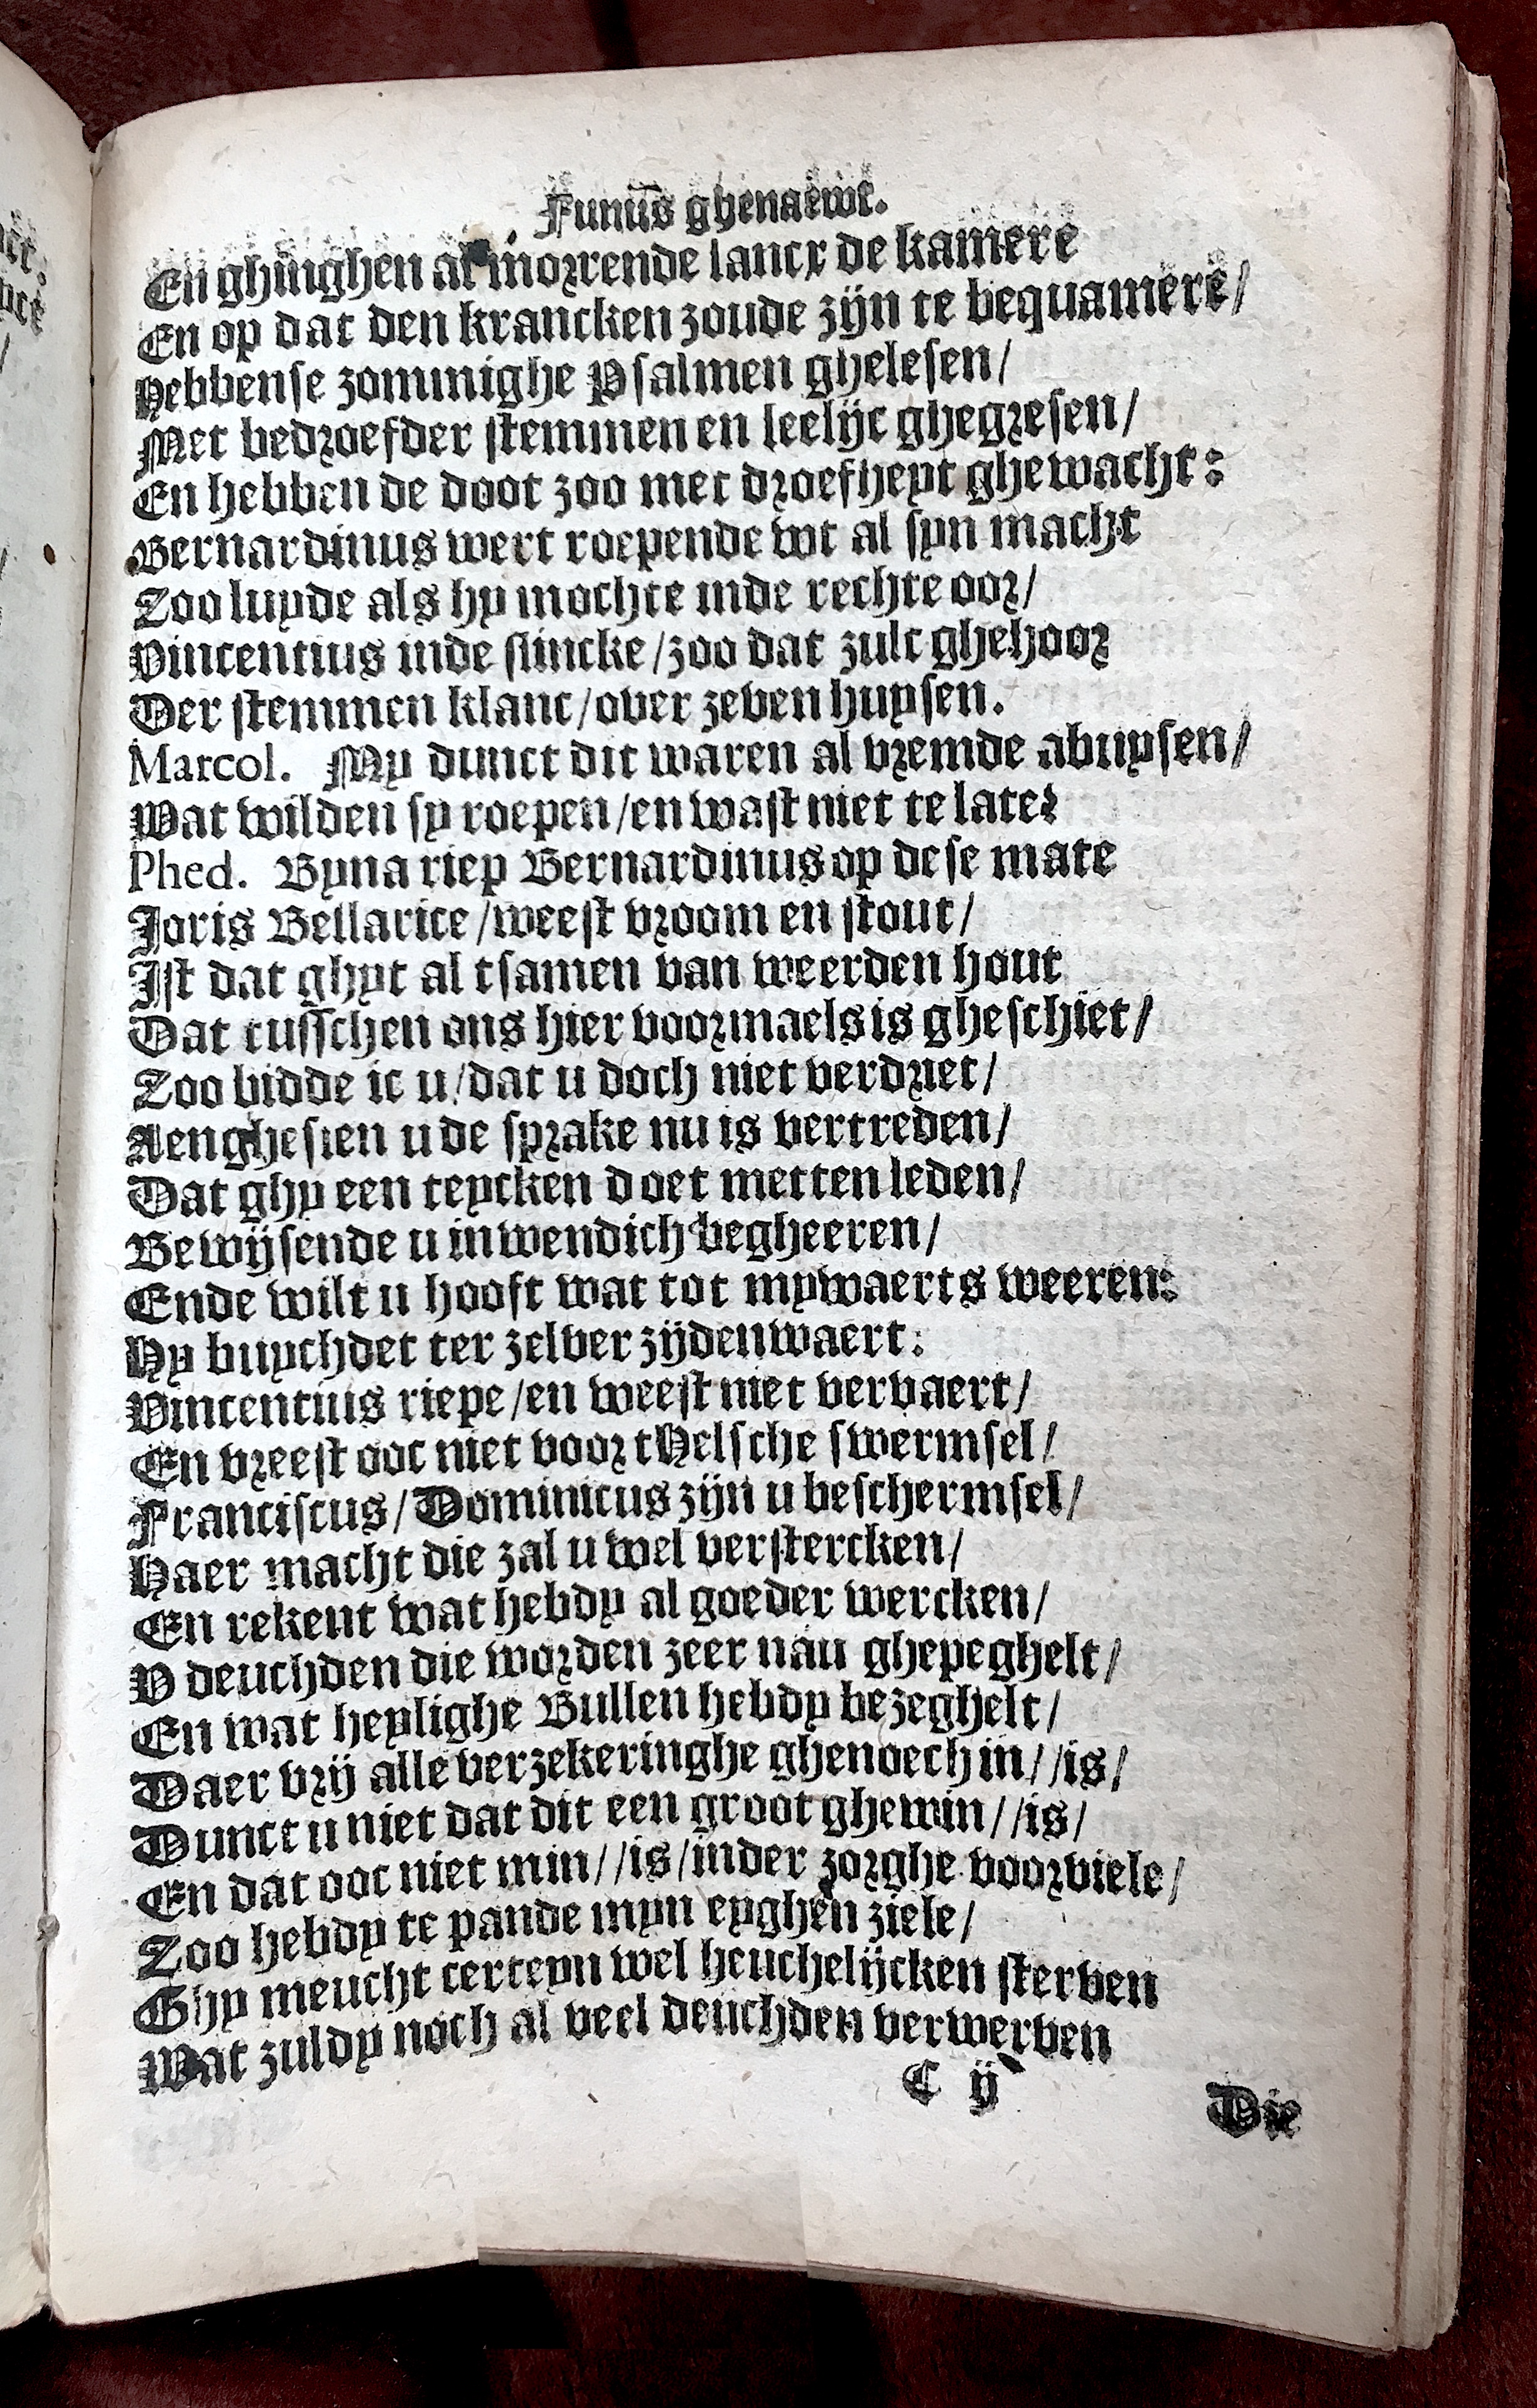 Funus ghenaemt.
En ghinghen al morrende lancx de kamere
En op dat den krancken zoude zijn te bequamere/
Hebbense zommighe Psalmen ghelesen/
Met bedroefder stemmen en leelijc ghegresen/
En hebben de doot zoo met droefheyt ghewacht:
Bernardinus wert roepende wt al syn macht
Zoo luyde als hy mochte inde rechte oor/
Vincentius inde slincke/zoo dat zulc ghehoor
Der stemmen klanc/over zeven huysen.
Marcol. My dunct dit waren al vremde abuysen/
Wat wilden sy roepen/en wast niet te late?
Phed. Byna riep Bernardinus op dese mate
Joris Bellarice/weest vroom en stout/
Ist dat ghyt al tsamen van weerden hout
Dat tusschen ons hier voormaels is gheschiet/
Zoo bidde ic u/dat u doch niet verdriet/
Aenghesien u de sprake nu is vertreden/
Dat ghy een teycken doet metten leden/
Bewijsende u inwendich begheeren/
Ende wilt u hooft wat tot mywaerts weeren:
Hy buychdet ter zelver zijdenwaert:
Vincentius riepe/en weest niet vervaert/
En vreest ooc niet voor tHelsche swermsel/
Franciscus/Dominicus zijn u beschermsel/
Haer macht die zal u wel verstercken/
En rekent wat hebdy al goeder wercken/
V deuchden die worden zeer nau ghepeghelt/
En wat heylighe Bullen hebdy bezeghelt/
Daer vrij alle verzekeringhe ghenoech in//is/
Dunct u niet dat dit een groot ghewin//is/
En dat ooc niet min//is/inder zorghe voorviele/
Zoo hebdy te pande myn eyghen ziele/
Ghy meucht certeyn wel heuchelijcken sterven
Wat zuldy noch al veel deuchden verwerven
C ij
Die